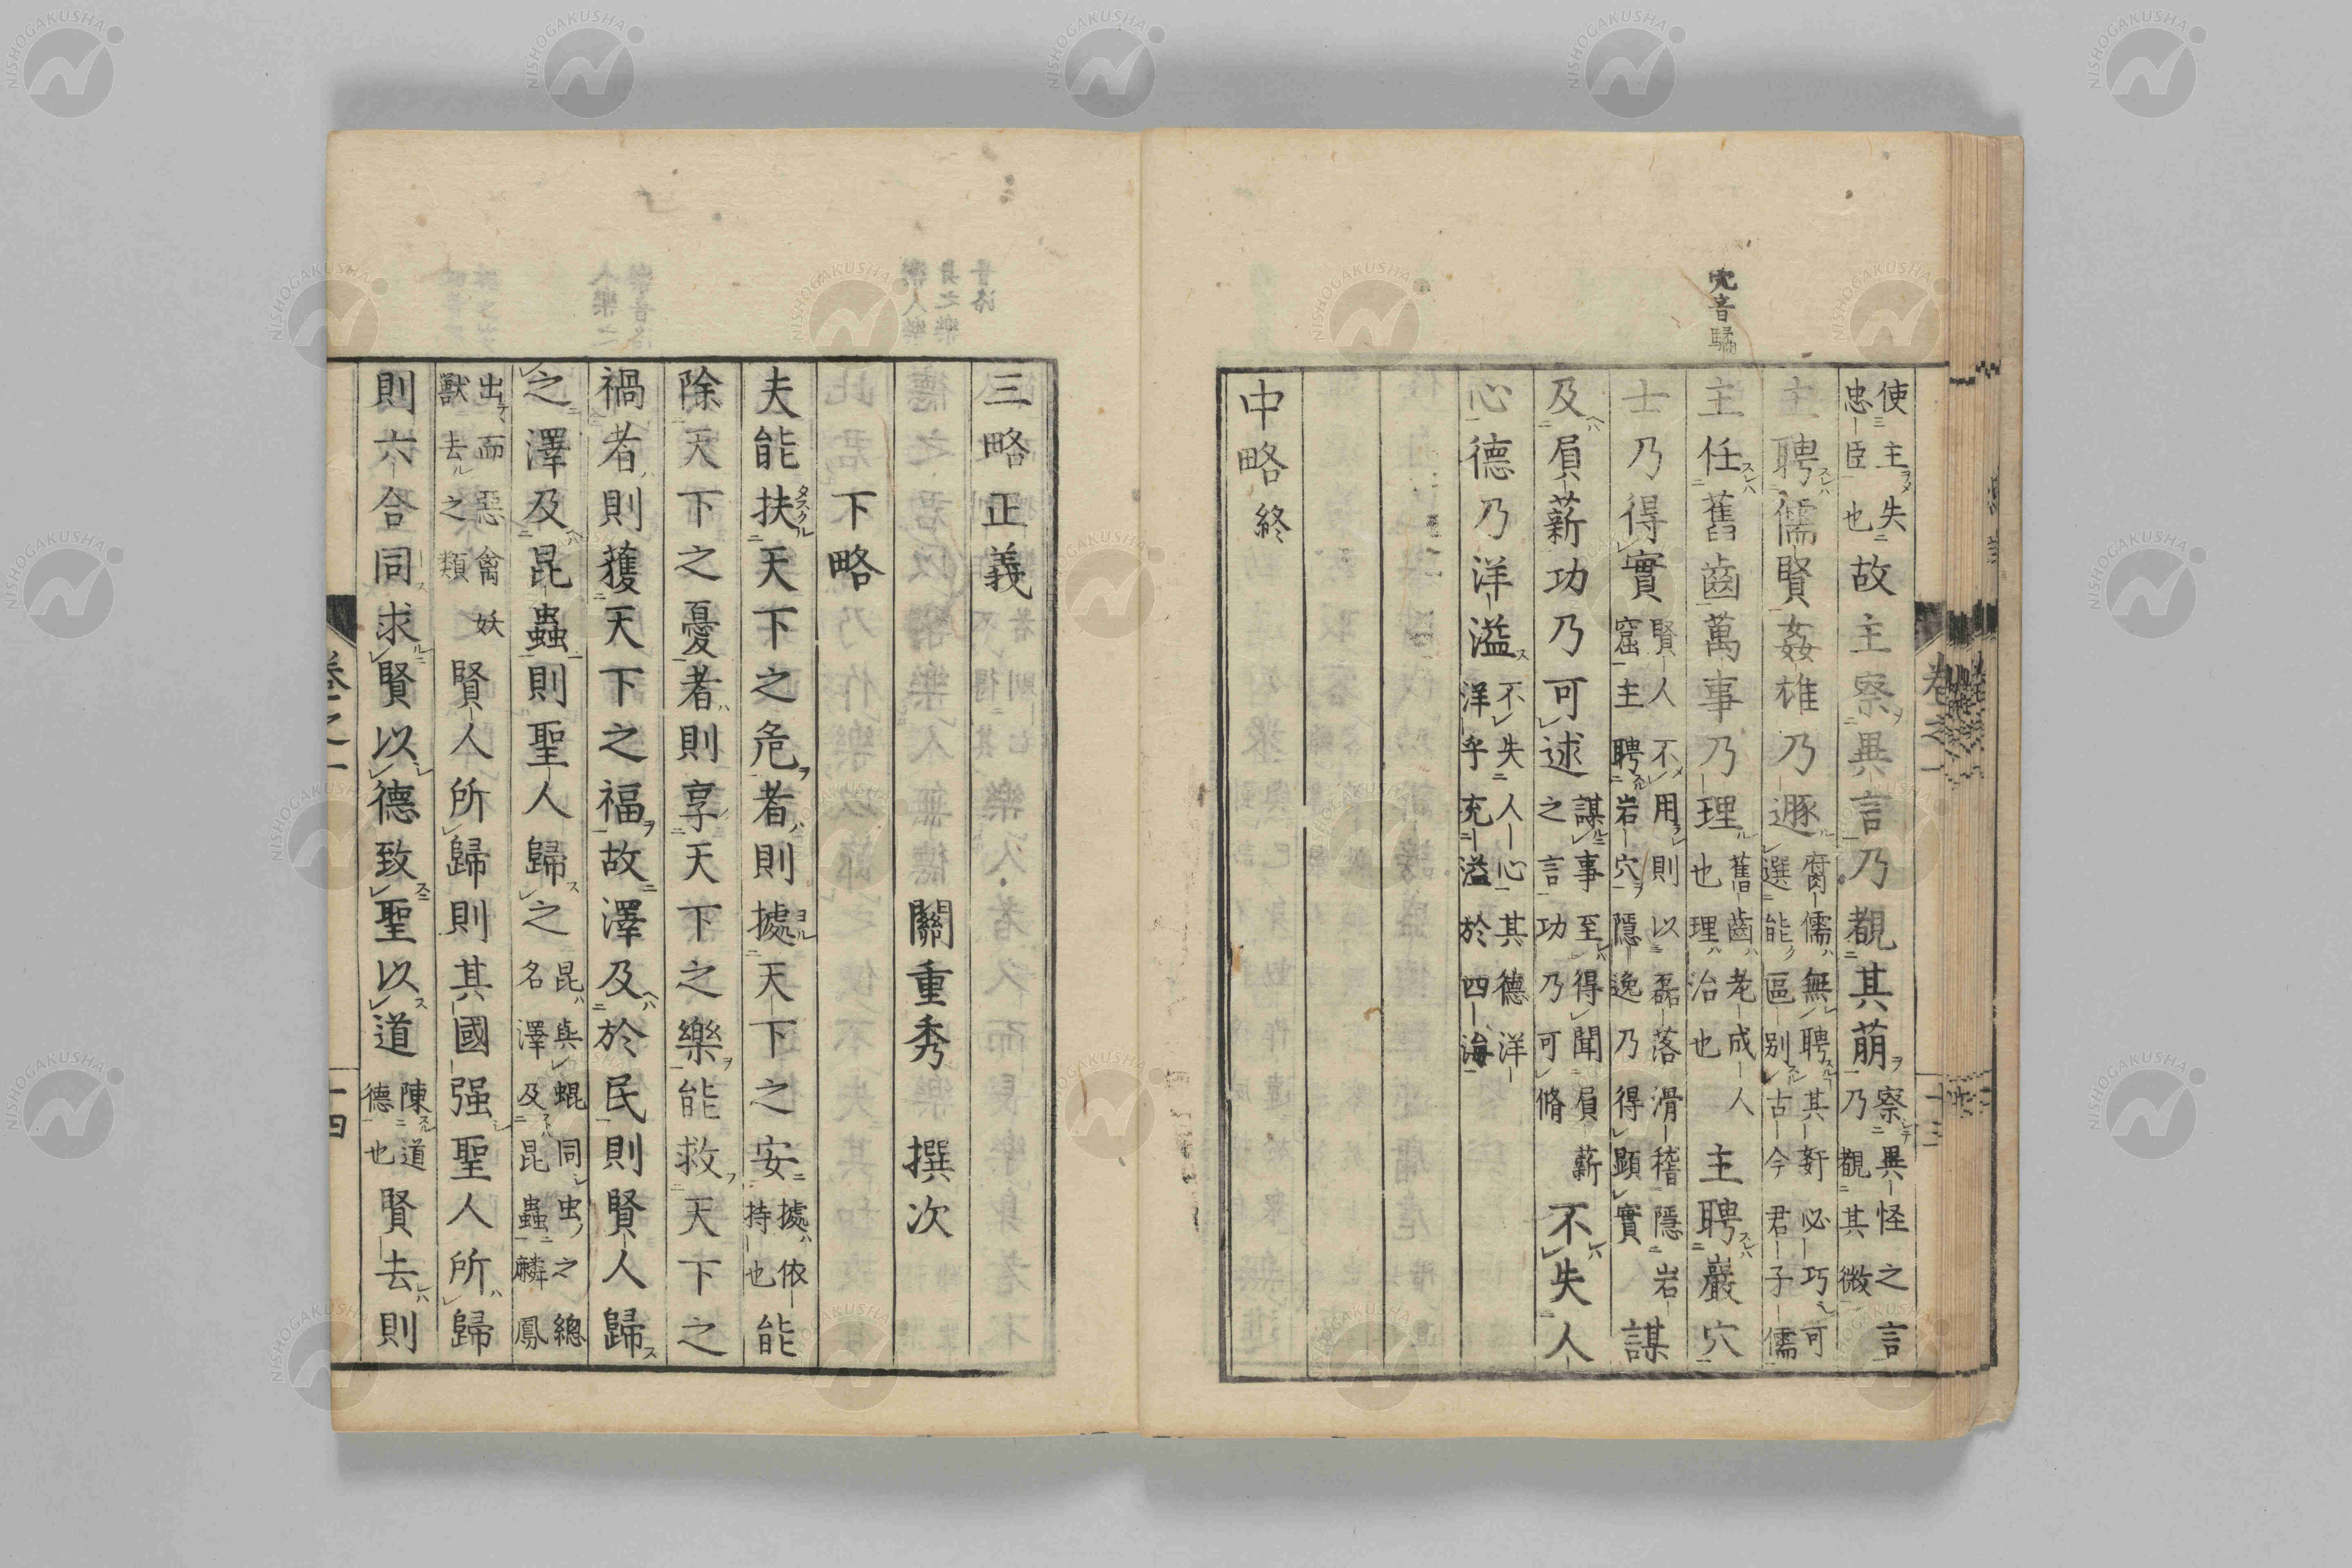 穴音
使主失
忠臣也
故主察異言乃覩其萌
察異怪之言
乃覩其微
主聘儒賢姦雄乃遯
腐儒無聘其姧必巧可
選能區別古今君子儒
主任舊齒萬事乃理
舊齒老成人
也理治也
主聘巖穴
士乃得實
賢人不用則以磊落滑稽隱岩
窟主聘岩穴隱逸乃得顕實
謀
及屓薪功乃可述
謀事至得聞屓薪
之言功乃可脩
不失人
心德乃洋溢
不失人心其德洋
洋乎充溢於四海
中略終
卷之一
十三
三略正義
關重秀撰次
下略
夫能扶天下之危者則據天下之安
據依
持也
能
除天下之憂者則享天下之樂能救天下之
禍者則獲天下之福故澤及於民則賢人歸
之澤及昆蟲則聖人歸之
昆與蜫同虫之總
名澤及昆蟲麟鳳
出而惡禽妖
獸去之類
賢人所歸則其國强聖人所歸
則六合同求賢以德致聖以道
陳道
德也
賢去則
卷之一
十四